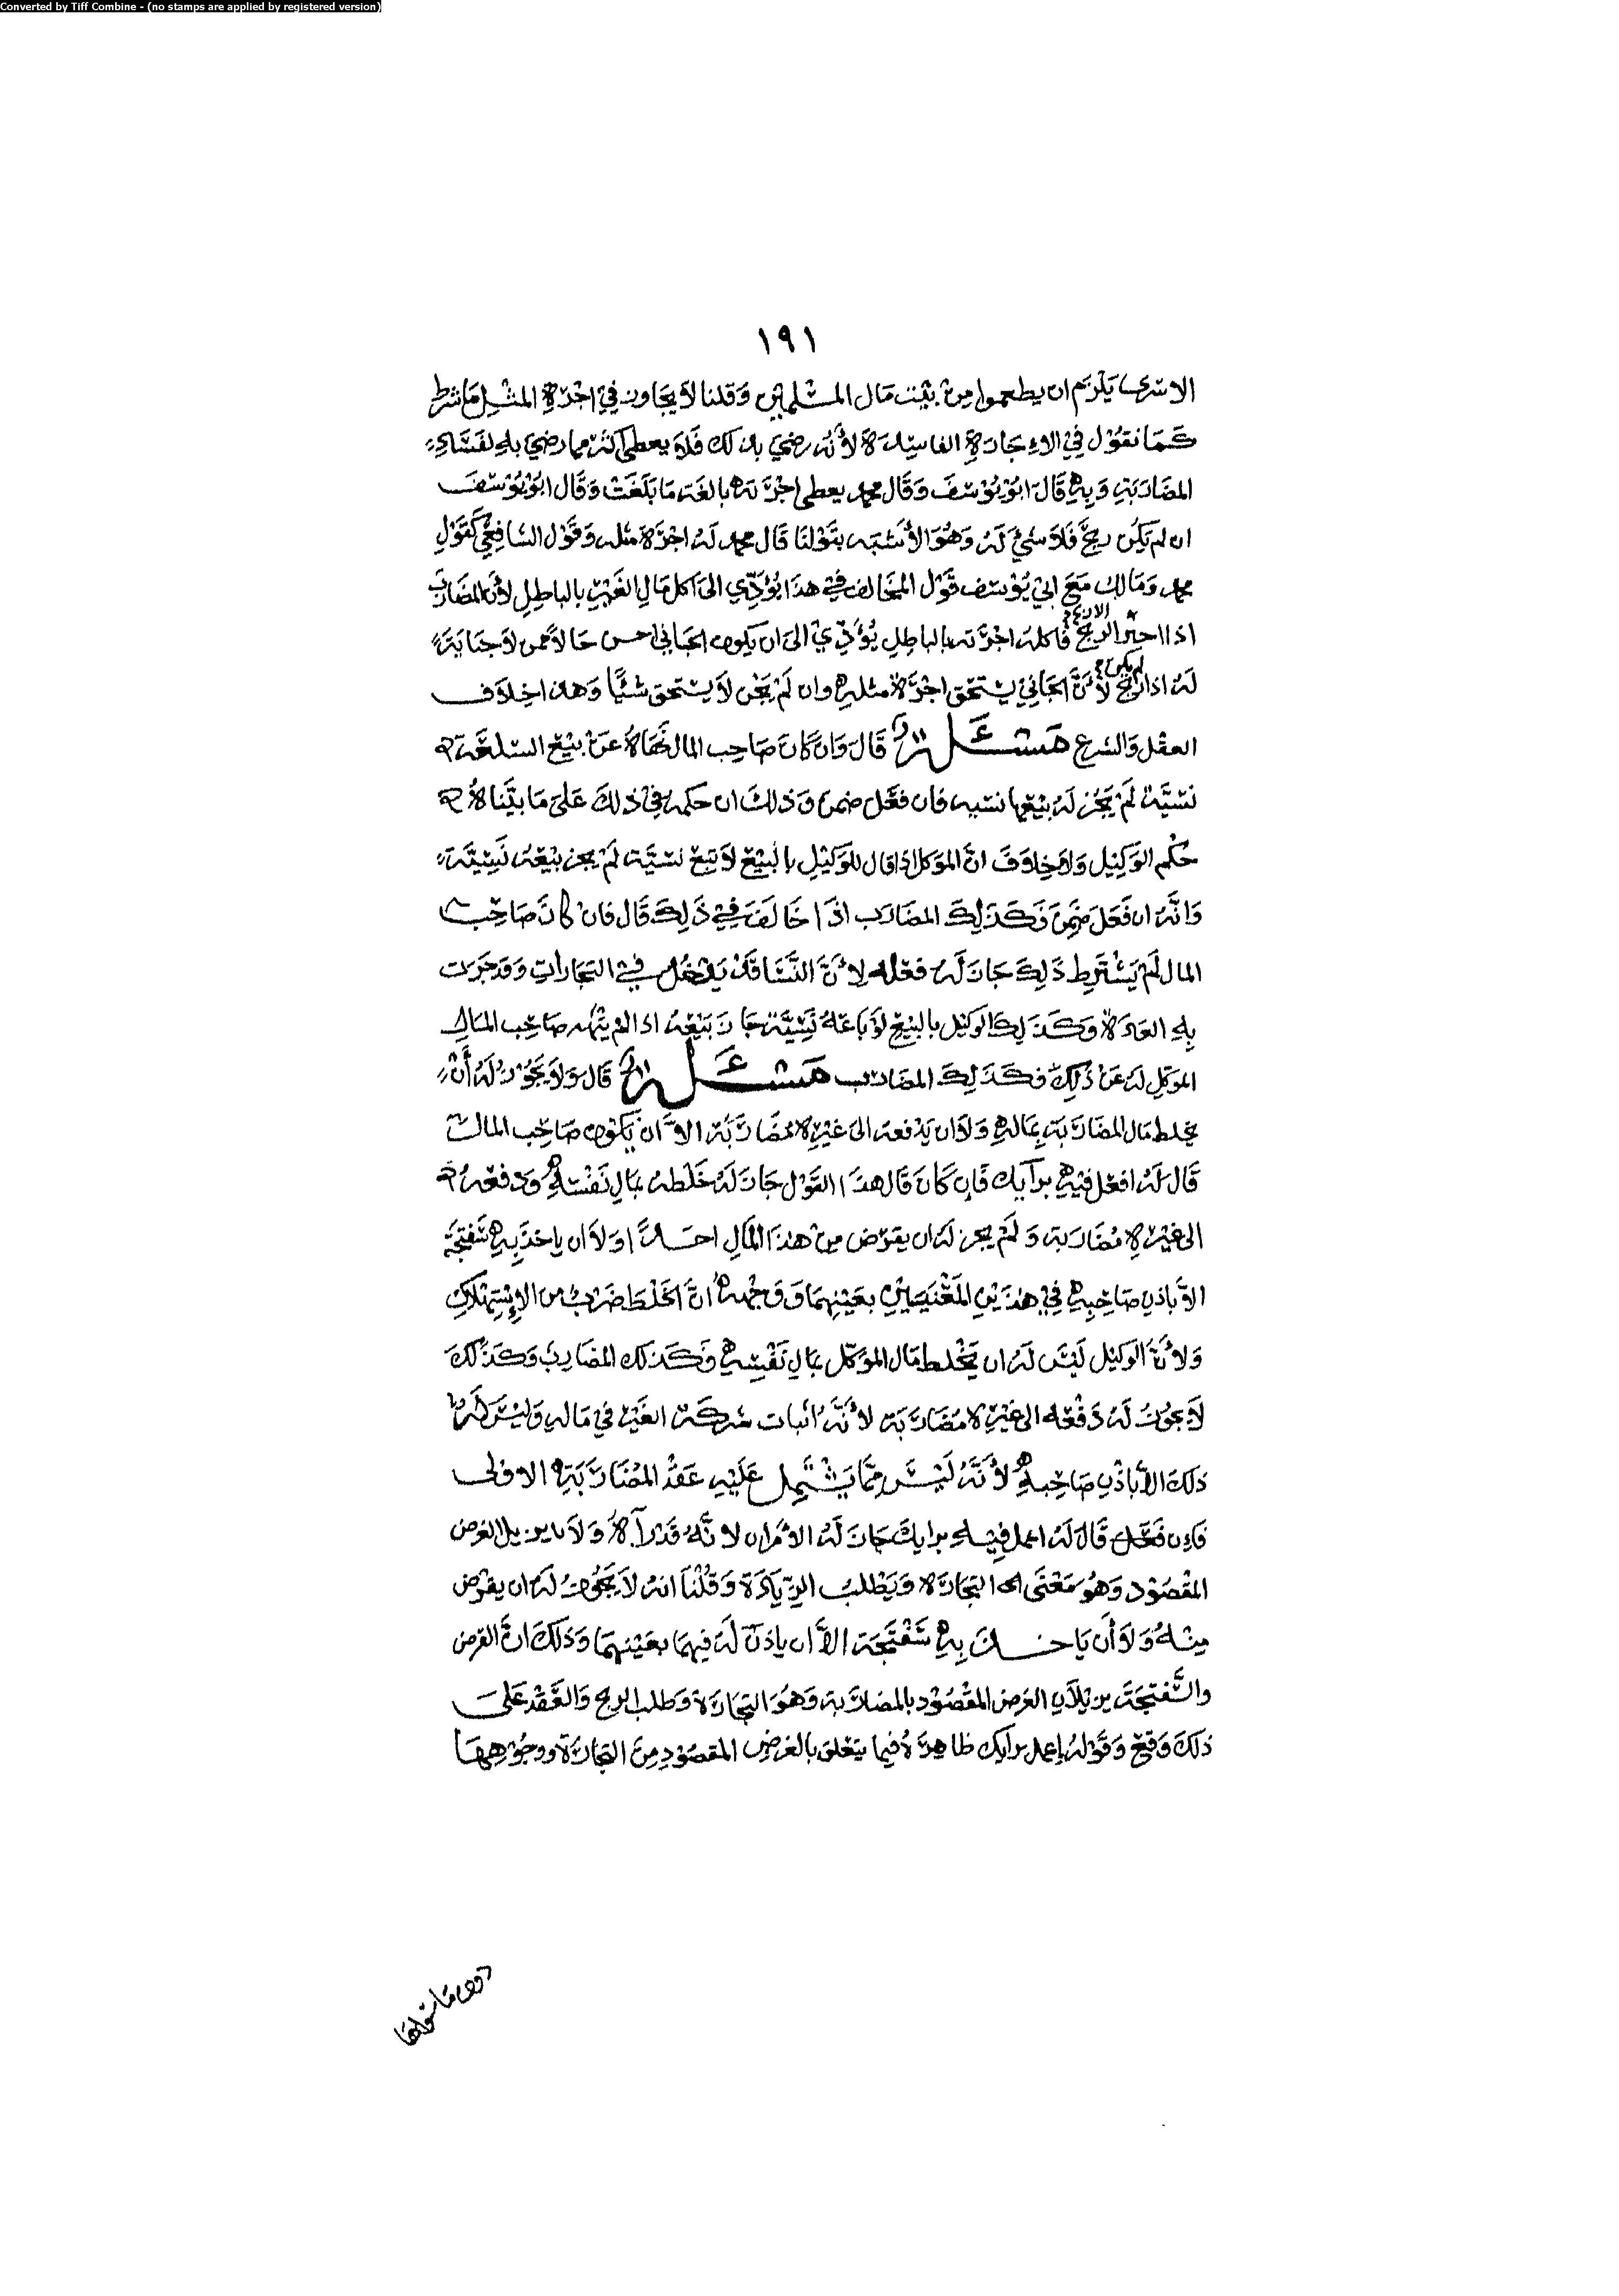 Converted by Tiff Combine - (no stamps are applied by registered version)
١٩١
الاسرى يلزم ان يطعموا من بيت مال المسلمين وقلنا لا يجاوز في اجرة المثل ما شرط
كما نقول في الاجارة الفاسدة لأنه رضي بذلك فلا يعطى أكثر مما رضي به لفساد
المضاربة وبه قال ابو يوسف وقال محمد يعطى اجرته بالغة ما بلغت وقال ابو يوسف
ان لم يكن ربح فلا شيء له وهو الأشبه بقولنا قال محمد له اجرة مثله وقول الشافعي كقول
محمد ومالك مع ابي يوسف قول المخالف في هذا يؤدي الى اكل مال الغير بالباطل لأن المضارب
اذا الربح فاكله اجرته بالباطل يؤدي الى ان يكون الجاني احسن حالا ممن لا جناية
له اذا لم يكن ربح لأن الجاني يستحق اجرة مثله وان لم يجن لا يستحق شيئا وهذا خلاف
العقل والشرع مسئلة قال وان كان صاحب المال نهاه عن بيع السلعة
نسيّة لم يجز له بيعها نسيه فان فعل ضمن وذلك ان حكمه في ذلك على ما بيّناه
حكم الوكيل ولا خلاف انّ الموكل اذا قال للوكيل بالبيع لا تبع نسيّة لم يجز بيعه نسيّة
وانّه ان فعل ضمن فكذلك المضارب اذا خالف في ذلك قال فان كان صاحب
المال لم يشترط ذلك جاز له فعله لأنّ النَّسَا قد يدخل في التجارات وقد جرت
به العادة وكذلك الوكيل بالبيع لو باعه نسيّة جاز بيعه اذا لم ينهه صاحب المال
الموكل له عن ذلك فكذلك المضارب مسئلة قال ولا يجوز له أن
يخلط مال المضاربة بماله ولا ان يدفعه الى غيره مضاربة الاّ ان يكون صاحب المال
قال له افعل فيه برأيك فإن كان قال هذا القول جاز له خلطه بمال نفسه ودفعه
الى غيره مضاربة ولم يجز له ان يقرض من هذا المال احدًا ولا ان ياخذ به سفتجة
الاّ باذن صاحبه في هذين المعنيين بعينهما ووجهه انّ الخلط ضرب من الإستهلاك
ولأنّ الوكيل ليس له ان يخلط مال الموكل بمال نفسه فكذلك المضارب وكذلك
لا يجوز له دفعه الى غيره مضاربة لأنّه اثبات شركة الغير في ماله وليس له
ذلك الاّ باذن صاحبه لأنّه ليس ممّا يشتمل عليه عقد المضاربة الاولى
فإن قال له اعمل فيه برايك جاز له الامران لانّه قد رآه ولا يزيلا الغرض
المقصود وهو معنى التجارة ويطلب الزيادة وقلنا انه لا يجوز له ان يقرض
منه ولا أن ياخذ به سفتجة الاّ ان ياذن له فيهما بعينهما وذلك انّ القرض
والسّفتجة يزيلان الغرض المقصود بالمضاربة وهو التجارة وطلب الربح والعقد على
ذلك وقع وقوله إعمل برايك ظاهره فيما يتعلق بالغرض المقصود من التجارة ووجوهها
دون ما سواها